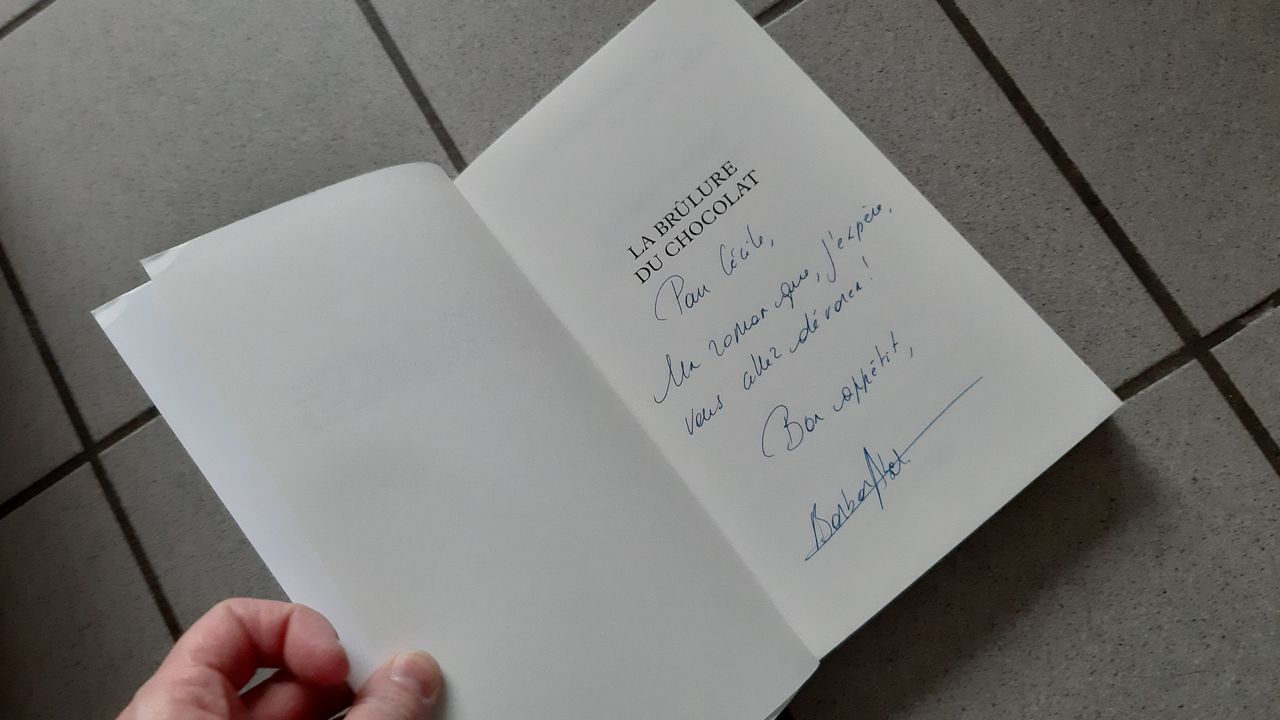 LA BRÛLURE
DU CHOCOLAT
Pour Cécile,
Un roman que, j'espère,
vous allez dévorer !
Bon appétit,
Barbar Abel